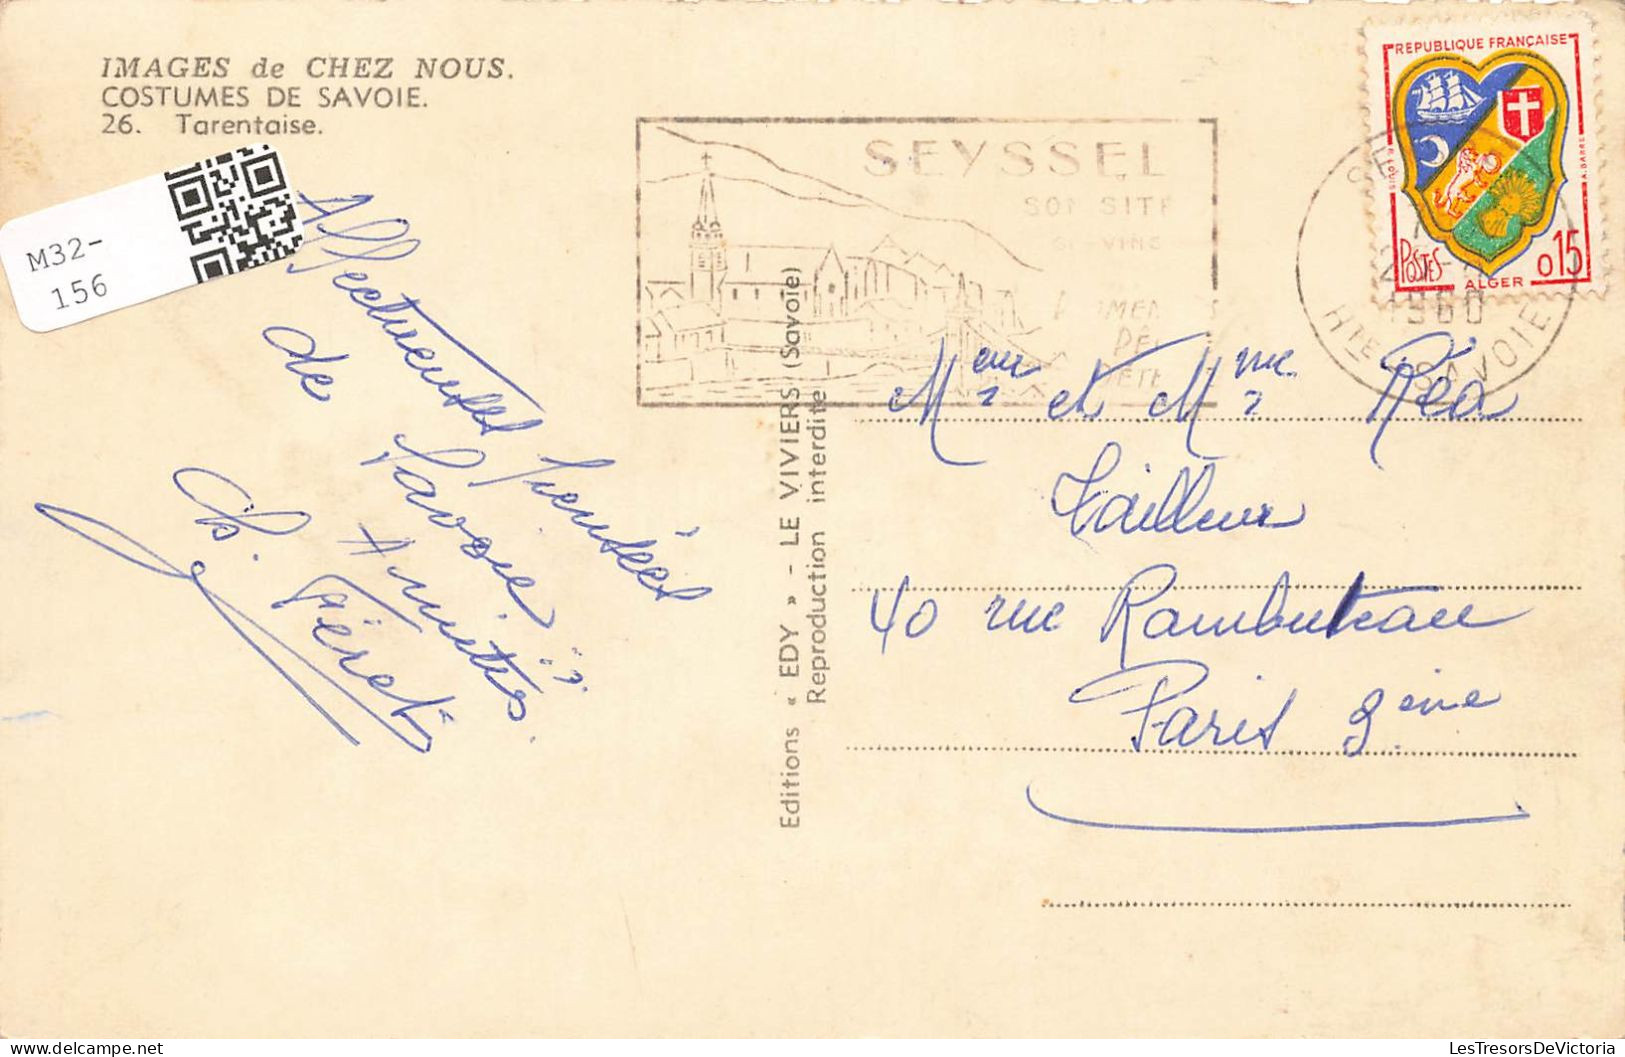 IMAGES de CHEZ NOUS.
COSTUMES DE SAVOIE.
26. Tarentaise.
M32-
156
Affectueuses Pensées
de Savoie
Amitiés.
Féret
Editions « EDY » - LE VIVIERS (Savoie)
Reproduction interdite
SEYSSEL
SON SITE
1960
HTE SAVOIE
REPUBLIQUE FRANÇAISE
POSTES
ALGER
0 15
Meur et Mme Réa
Tailleur
40 rue Rambuteau
Paris 3eme
LesTresorsDeVictoria